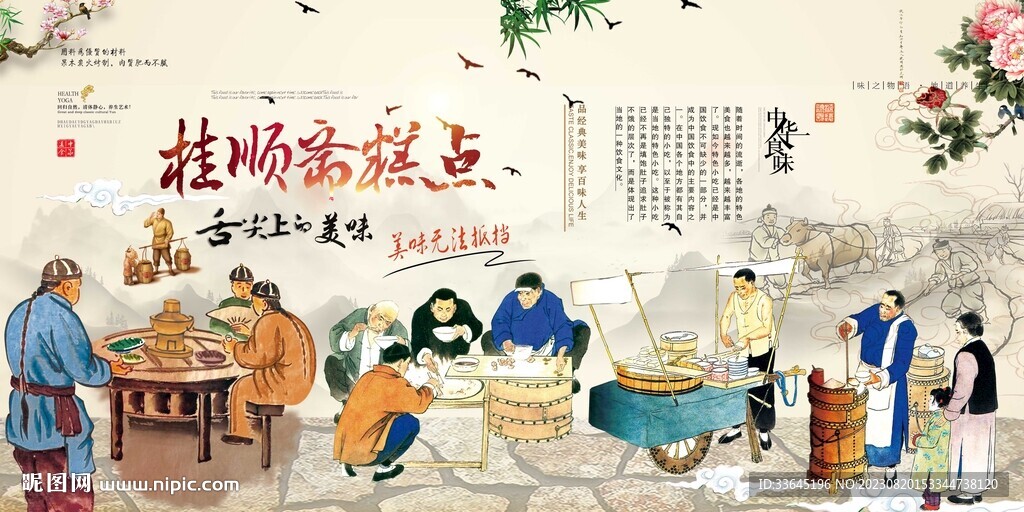 用料为优质的材料
果木炭火烤制,肉质肥而不腻
HEALTH
YOGA
回归自然,清体静心,养生艺术!
桂顺斋糕点
舌尖上的美味
美味无法抵挡
品经典美味 享百味人生
TASTE CLASSIC,ENJOY DELICIOUS LIFE
随着时间的流逝,各地的特色
美食也越来越多,越来越丰富
了,现如今特色小吃已经是中
国饮食中不可缺少的一部分,并
成为中国饮食中的主要内容之
一。在中国各个地方都有其自
己独特的小吃,以至于被称为
是当地的特色小吃。这种小吃
已经不再是填饱肚子追求肚子
不饿的层次了,而是体现出了
当地的一种饮食文化。
中华食味
昵图网 www.nipic.com
ID:33645196 NO:20230820153344738120